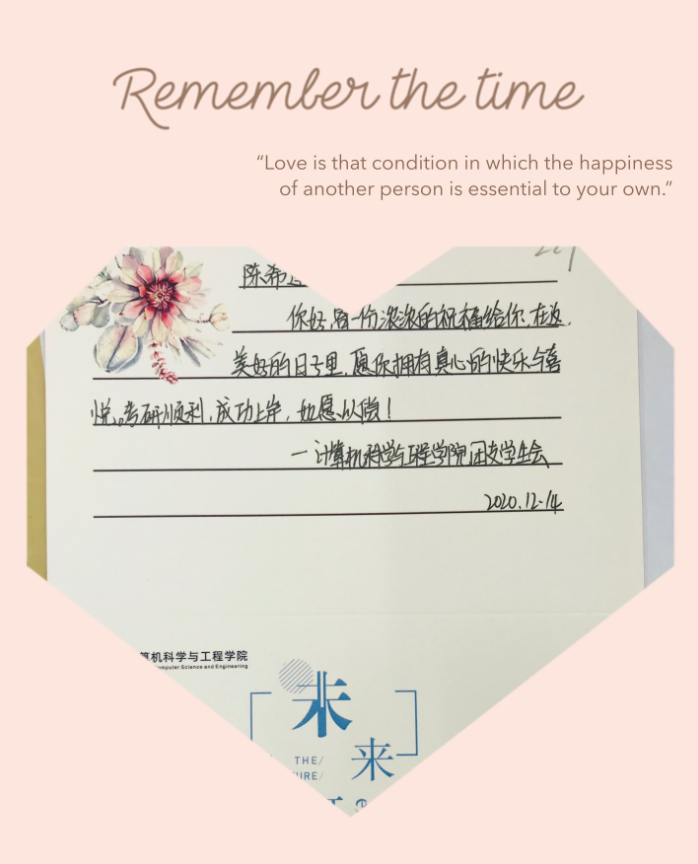 Remember the time
“Love is that condition in which the happiness
of another person is essential to your own.”
陈希
你好,留一份浓浓的祝福给你,在这
美好的日子里,愿你拥有真心的快乐与喜
悦。考研顺利,成功上岸,如愿以偿!
一计算机科学与工程学院团支学生会
2020.12.14
算机科学与工程学院
omputer Science and Engineering
未
THE/
来
URE/